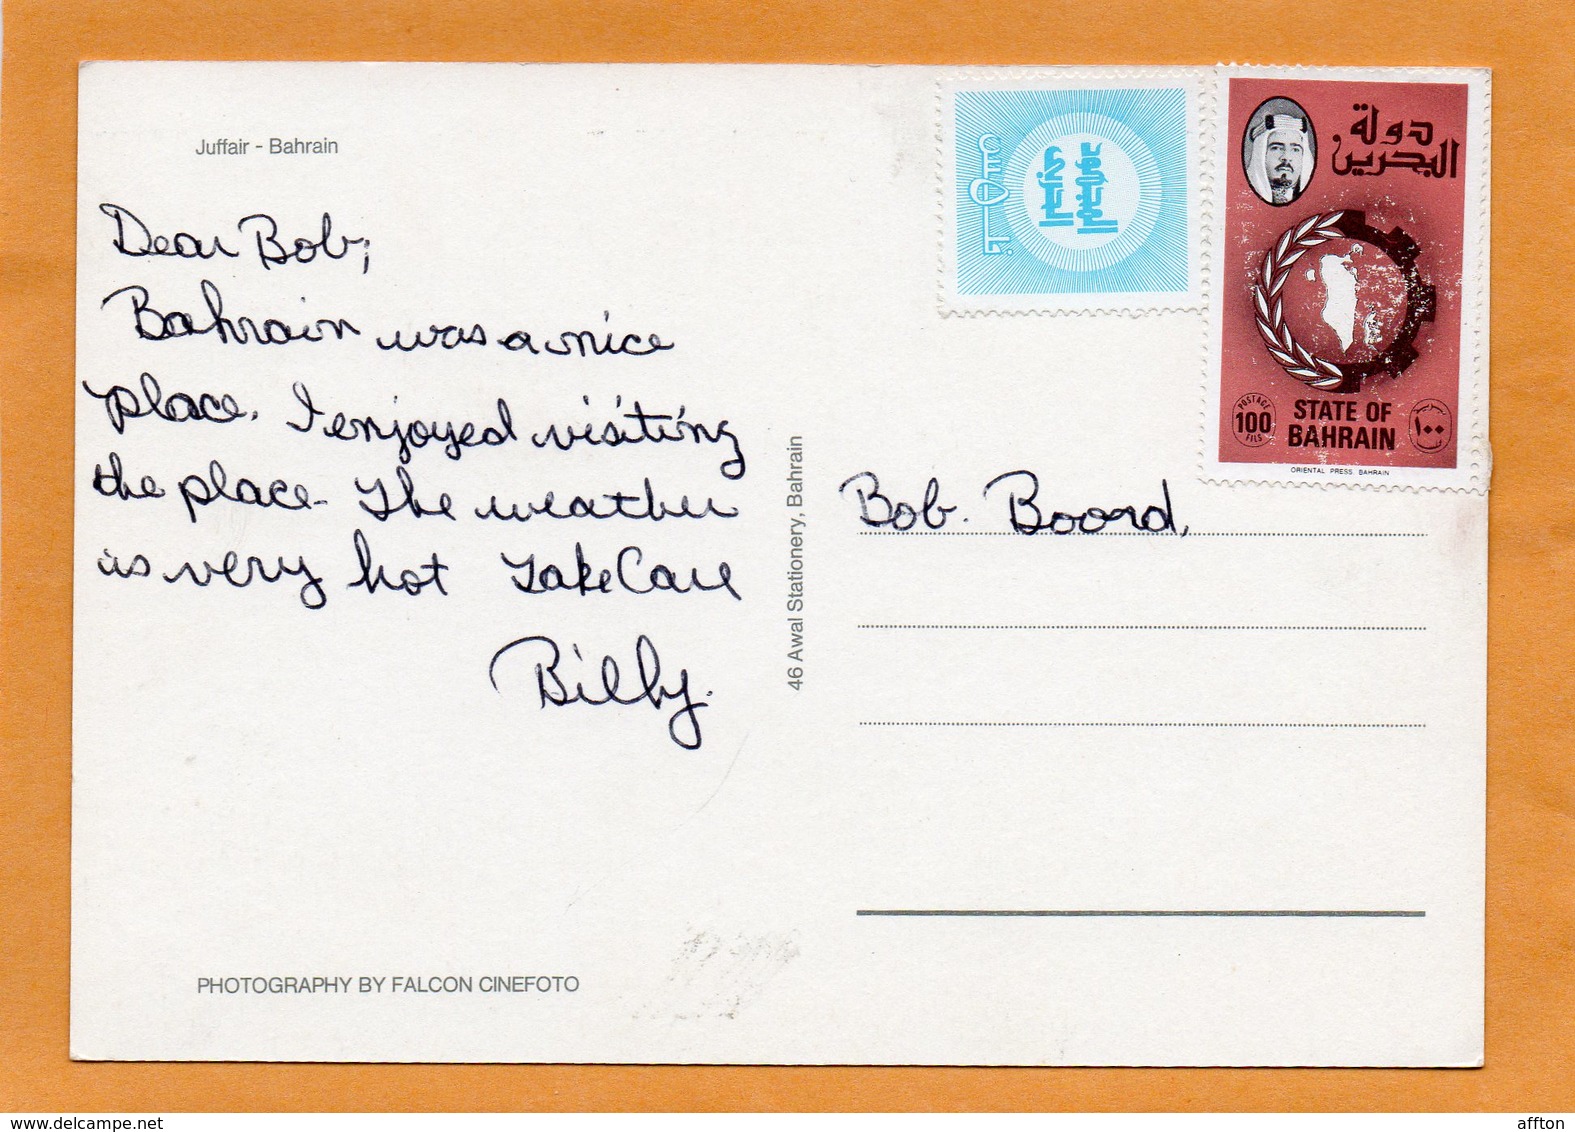 Juffair - Bahrain
Dear Bob,
Bahrain was a nice
place. I enjoyed visiting
the place - The weather
is very hot Take Care
Billy.
PHOTOGRAPHY BY FALCON CINEFOTO
46 Awal Stationery, Bahrain
دولة
البحرين
POSTAGE
100
FILS
STATE OF
BAHRAIN
١٠٠
ORIENTAL PRESS BAHRAIN
Bob. Boord,
www.delcampe.net
affton